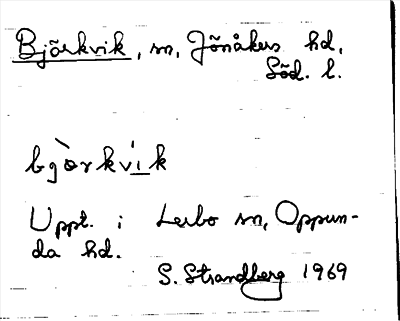 Björkvik, sn, Jönåkers hd,
Söd. l.
bjòrkvi̲k
Uppt. i Lerbo sn, Oppun-
da hd.
S. Strandberg 1969